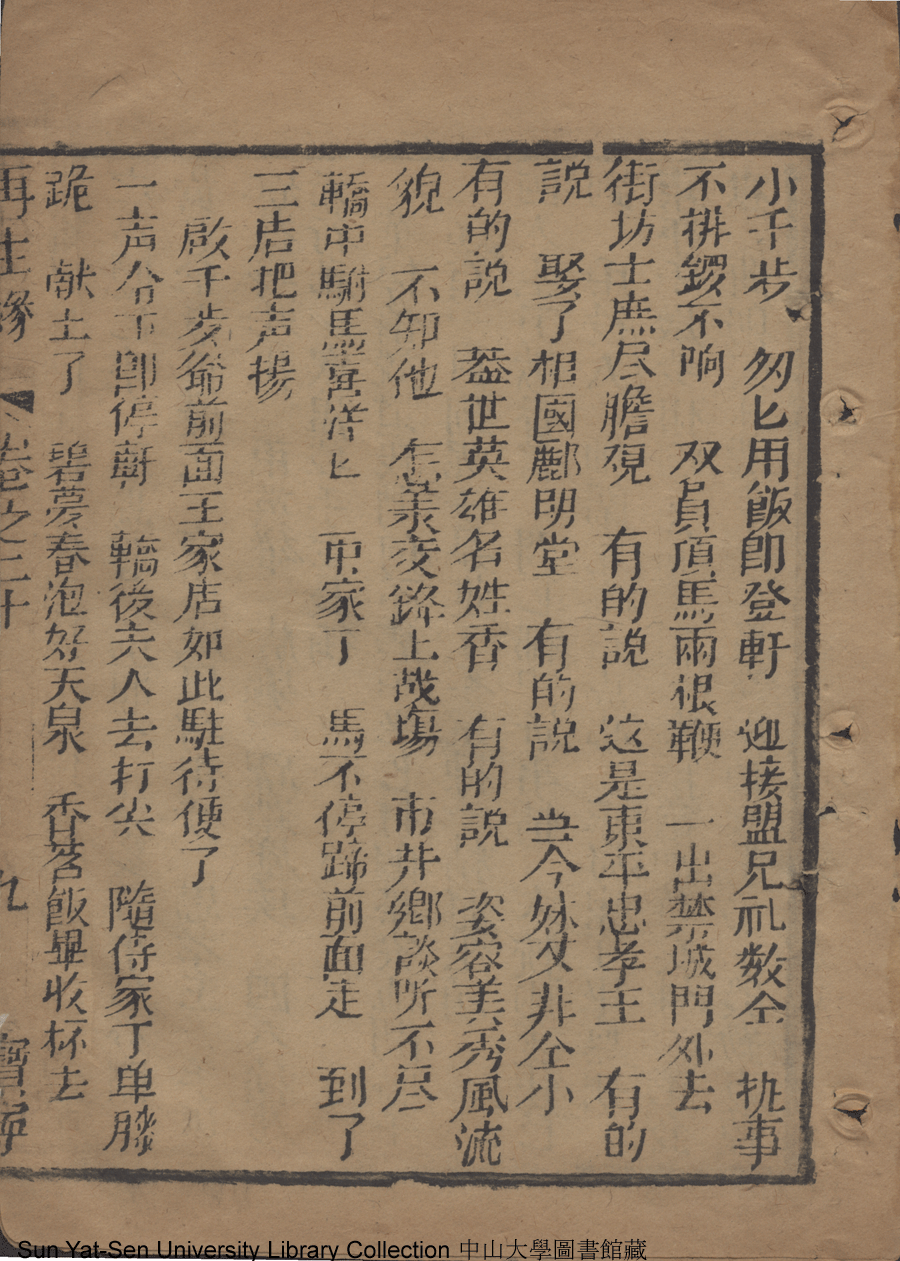 小千步　匆匕用飯即登軒　迎接盟兄礼数仝　执事
不排鑼不响　双員頂馬兩根鞭　一出禁城門外去
街坊士庶尽膽覌　有的説　这是東平忠孝王　有的
説　娶了相國酈明堂　有的説　当今妹丈非仝小
有的説　盖世英雄名姓香　有的説　姿容美秀風流
貌　不知他　怎美交鋒上战場　市井鄉談听不尽
轎中駙馬喜洋匕　家丁　馬不停蹄前面走　到了
三店把声揚
啟千歩爺前面王家店如此駐待便了
一声令下即停軒　轎後夫人去打尖　隨侍家丁单膝
跪　献上了　碧夢春泡好天泉　香茗飯畢收杯去
再生縁　卷之二十　九　寳寧
Sun Yat-Sen University Library Collection 中山大學圖書館藏